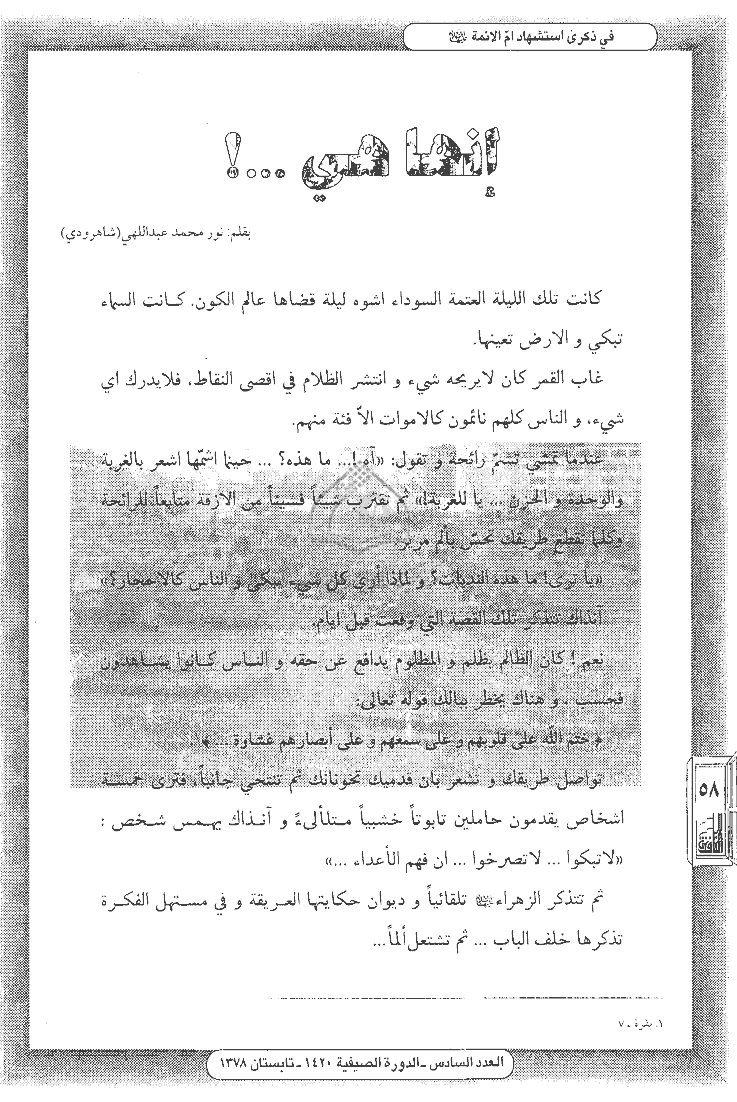 في ذكرى استشهاد امّ الائمة
إنها هي ...!
بقلم: نور محمد عبداللهي(شاهرودي)
كانت تلك الليلة العتمة السوداء اشوه ليلة قضاها عالم الكون. كانت السماء
تبكي و الارض تعينها.
غاب القمر كان لايريحه شيء و انتشر الظلام في اقصى النقاط، فلايدرك اي
شيء، و الناس كلهم نائمون كالاموات الاّ فئة منهم.
عندما تمشي تشمّ رائحة و تقول: «آه!... ما هذه؟ ... حينما اشمّها اشعر بالغربة
والوحدة و الحزن ... يا للغربة!» ثم تقترب شيئاً فشيئاً من الازقة متابعاً للرائحة
وكلما تقطع طريقك تحسّ بألم مرير.
«يا ترى! ما هذه الندبات؟ و لماذا أرى كل شيء يبكي و الناس كالاحجار؟»
آنذاك تتذكر تلك القصة التي وقعت قبل ايام.
نعم! كان الظالم يظلم و المظلوم يدافع عن حقه و الناس كانوا يشاهدون
فحسب ، و هناك يخطر ببالك قوله تعالى:
﴿ ختم الله على قلوبهم و على سمعهم و على أبصارهم غشاوة ... ﴾ .
تواصل طريقك و تشعر بان قدميك تخونانك ثم تنتحي جانباً، فترى خمسة
اشخاص يقدمون حاملين تابوتاً خشبياً متلألىءً و آنذاك يهمس شخص :
«لاتبكوا ... لاتصرخوا ... ان فهم الأعداء ...»
ثم تتذكر الزهراء تلقائياً و ديوان حكايتها العريقة و في مستهل الفكرة
تذكرها خلف الباب ... ثم تشتعل ألماً...
١. بقرة - ٧
٥٨
العدد السادس -الدورة الصيفية ١٤٢٠ - تابستان ١٣٧٨